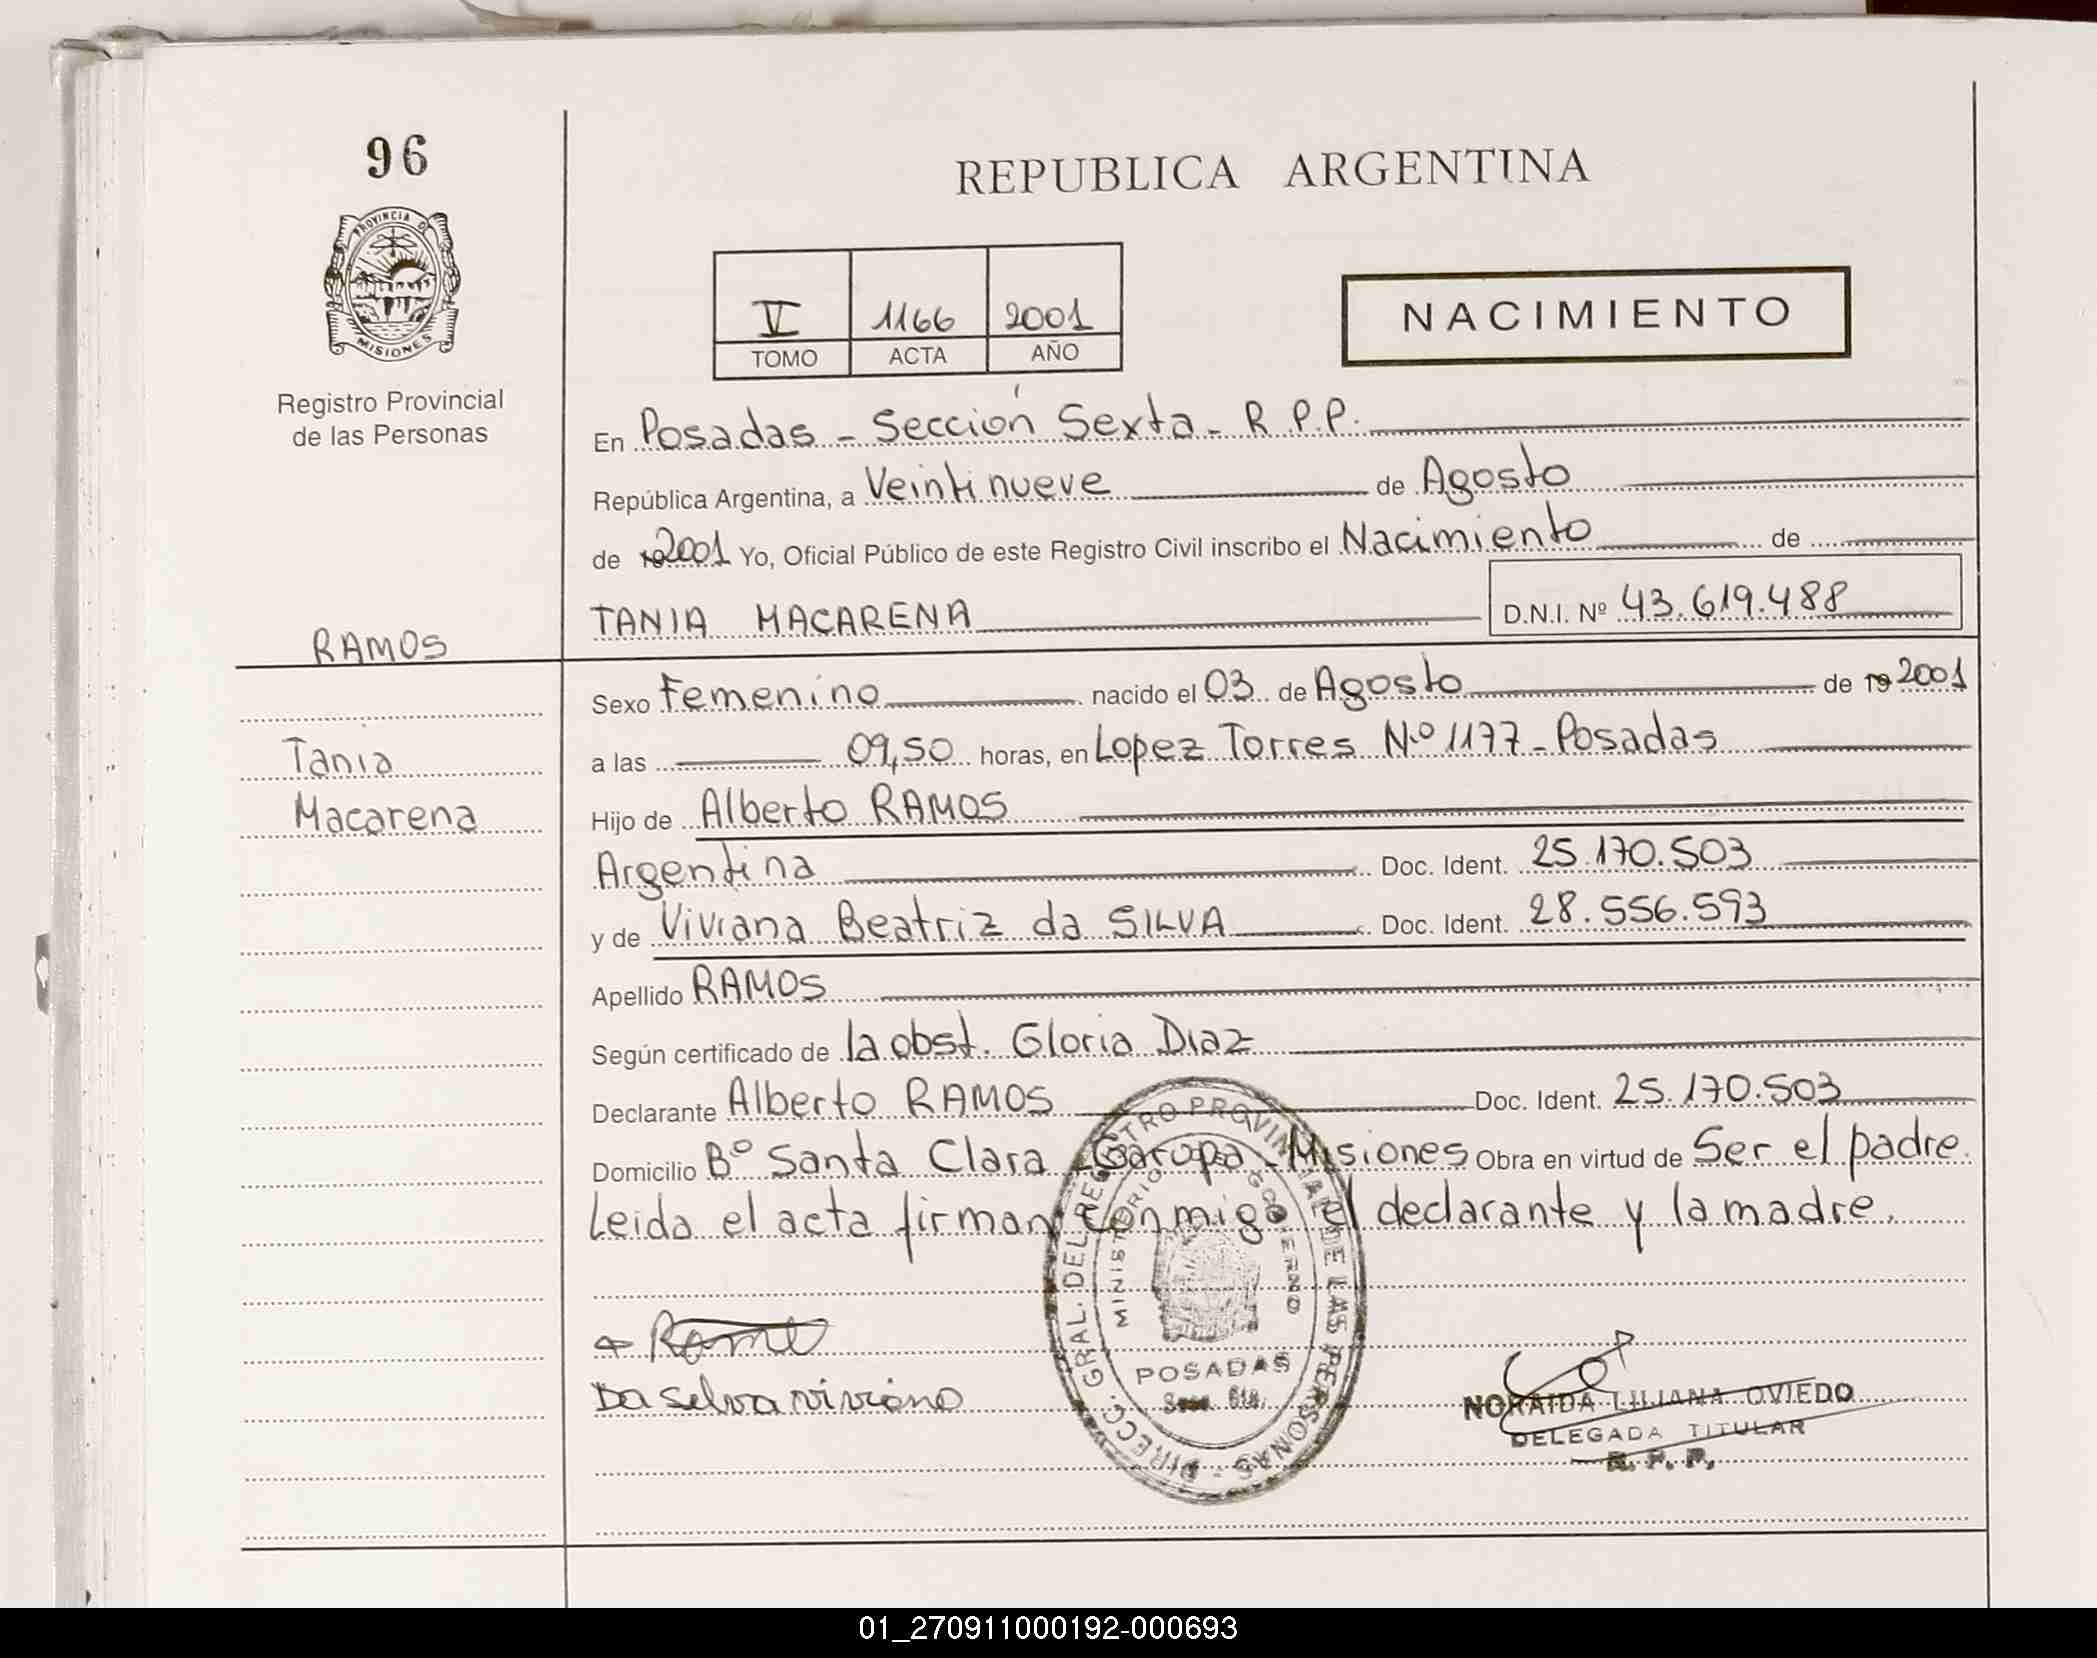 96
REPUBLICA ARGENTINA
PROVINCIA DE
MISIONES
V 1166 2001
TOMO ACTA AÑO
NACIMIENTO
Registro Provincial
de las Personas
En Posadas - Sección Sexta - R.P.P.
República Argentina, a Veintinueve de Agosto
de 19 2001 Yo, Oficial Público de este Registro Civil inscribo el Nacimiento de
TANIA MACARENA D.N.I. Nº 43.619.488
RAMOS
Sexo Femenino nacido el 03 de Agosto de 19 2001
Tania
a las 09,50 horas, en Lopez Torres Nº 1177 - Posadas
Macarena
Hijo de Alberto RAMOS
Argentina Doc. Ident. 25.170.503
y de Viviana Beatriz da SILVA Doc. Ident. 28.556.593
Apellido RAMOS
Según certificado de la obst. Gloria Diaz
Declarante Alberto RAMOS Doc. Ident. 25.170.503
Domicilio Bº Santa Clara - Garupa - Misiones Obra en virtud de Ser el padre.
Leida el acta firman conmigo el declarante y la madre.
DIRECC. GRAL. DEL REGISTRO PROVINCIAL DE LAS PERSONAS
MINISTERIO DE GOBIERNO
POSADAS
Da selva viviana
NORAIDA LILIANA OVIEDO
DELEGADA TITULAR
R. P. P.
01_270911000192-000693